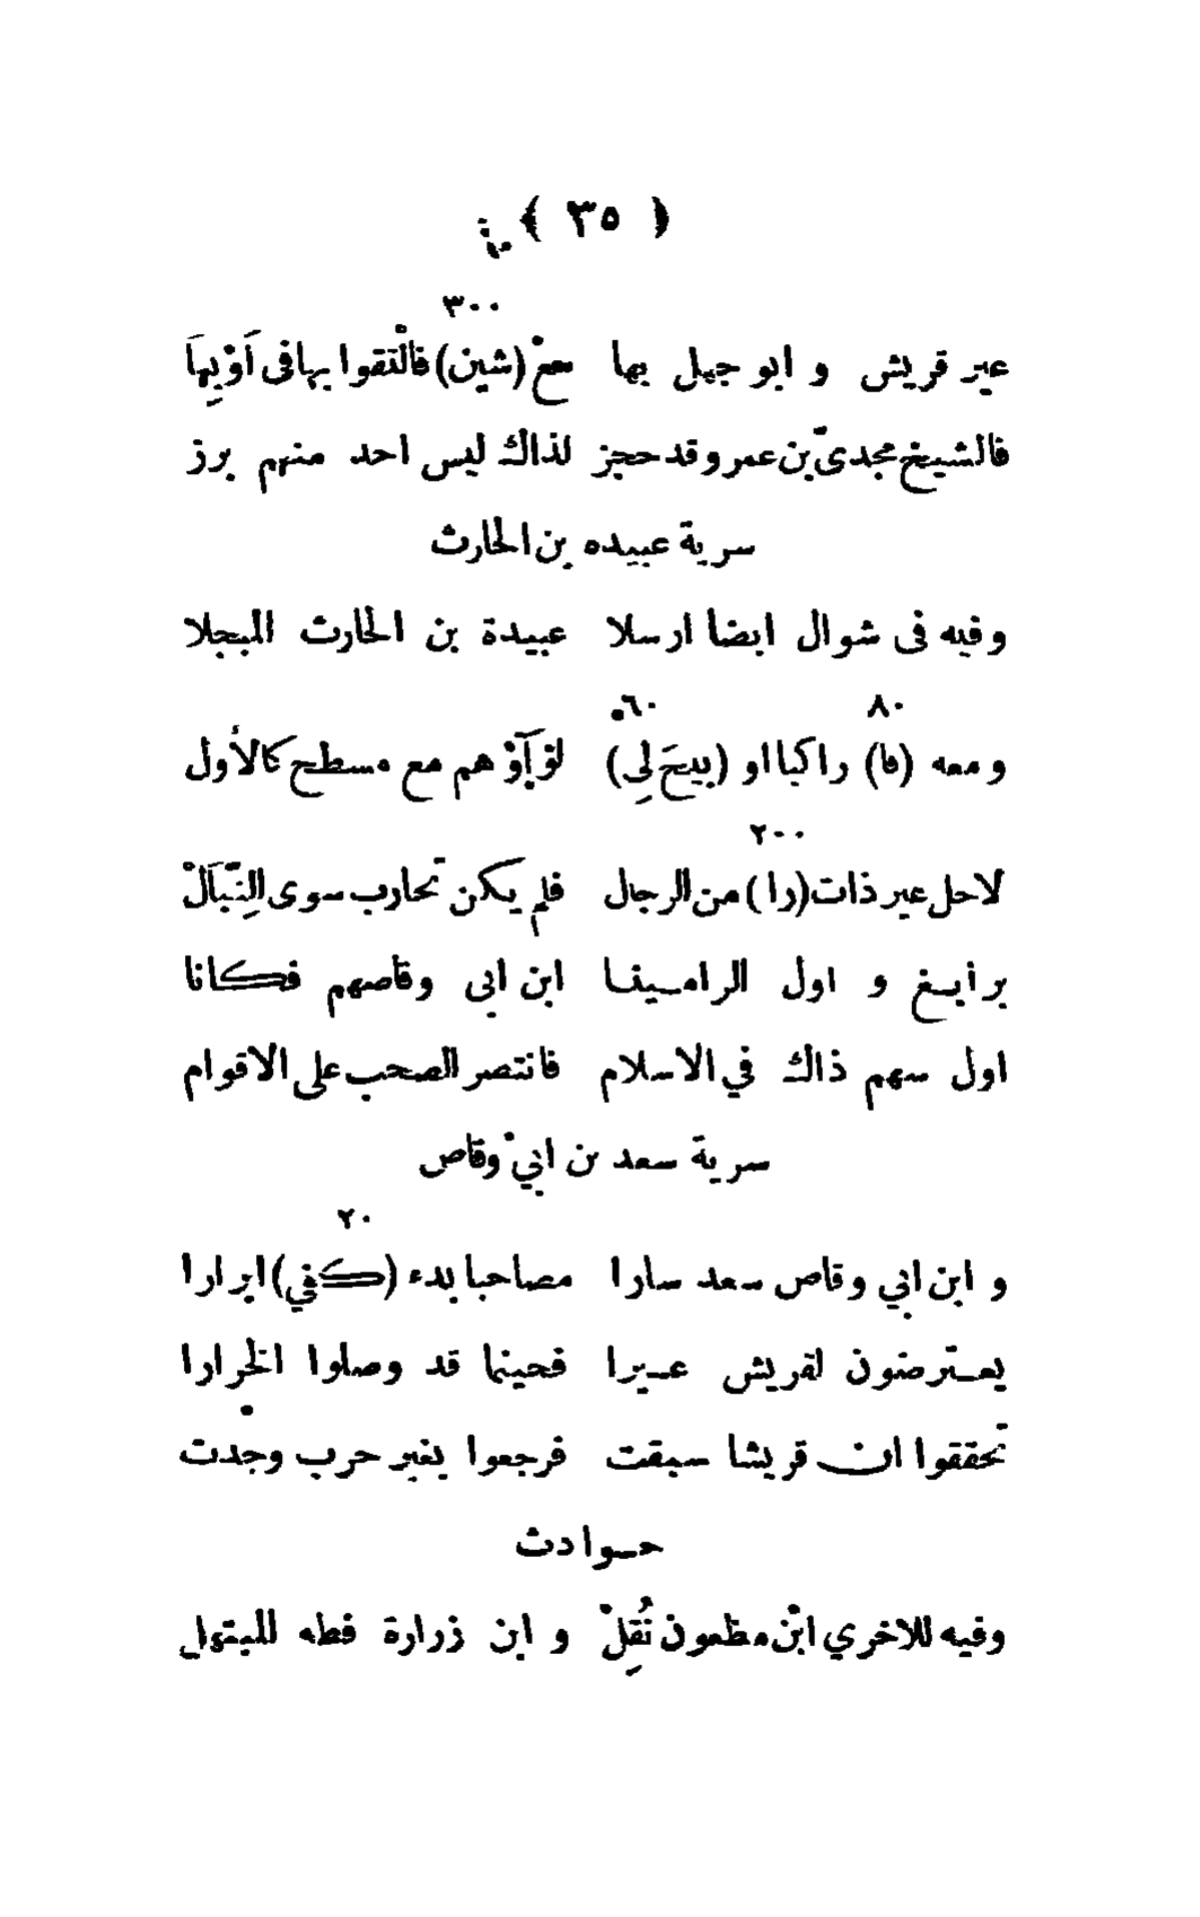 ﴿ ٣٥ ﴾
٣٠٠
عير قريش و ابو جهل بها معْ (شين) فالْتقوا بها فى اَوْبِهاَ
فالشيخ مجدىّ بن عمر وقد حجز لذاك ليس احد منهم برز
سرية عبيده بن الحارث
وفيه فى شوال ايضا ارسلا عبيدة بن الحارث المبجلا
٨٠ ٦٠
ومعه (فا) راكبا او (بيحَ لِى) هم مع مسطح كالأول
٢٠٠
لاحل عير ذات (را) من الرجال فلم يكن تحارب سوى النِّبَالْ
برابغ و اول الرامينا ابن ابى وقاصهم فكانا
اول سهم ذاك في الاسلام فانتصر الصحب على الاقوام
سرية سعد بن ابي وقاص
٢٠
و ابن ابي وقاص سعد سارا مصاحبا بدء (كفي) ابرارا
يعترضون لقريش عيرا فحينما قد وصلوا الخرارا
تحققوا ان قريشا سبقت فرجعوا بغير حرب وجدت
حوادث
وفيه للاخري ابْن مظعون نُقِلْ و ابن زرارة فطه للمبتهل